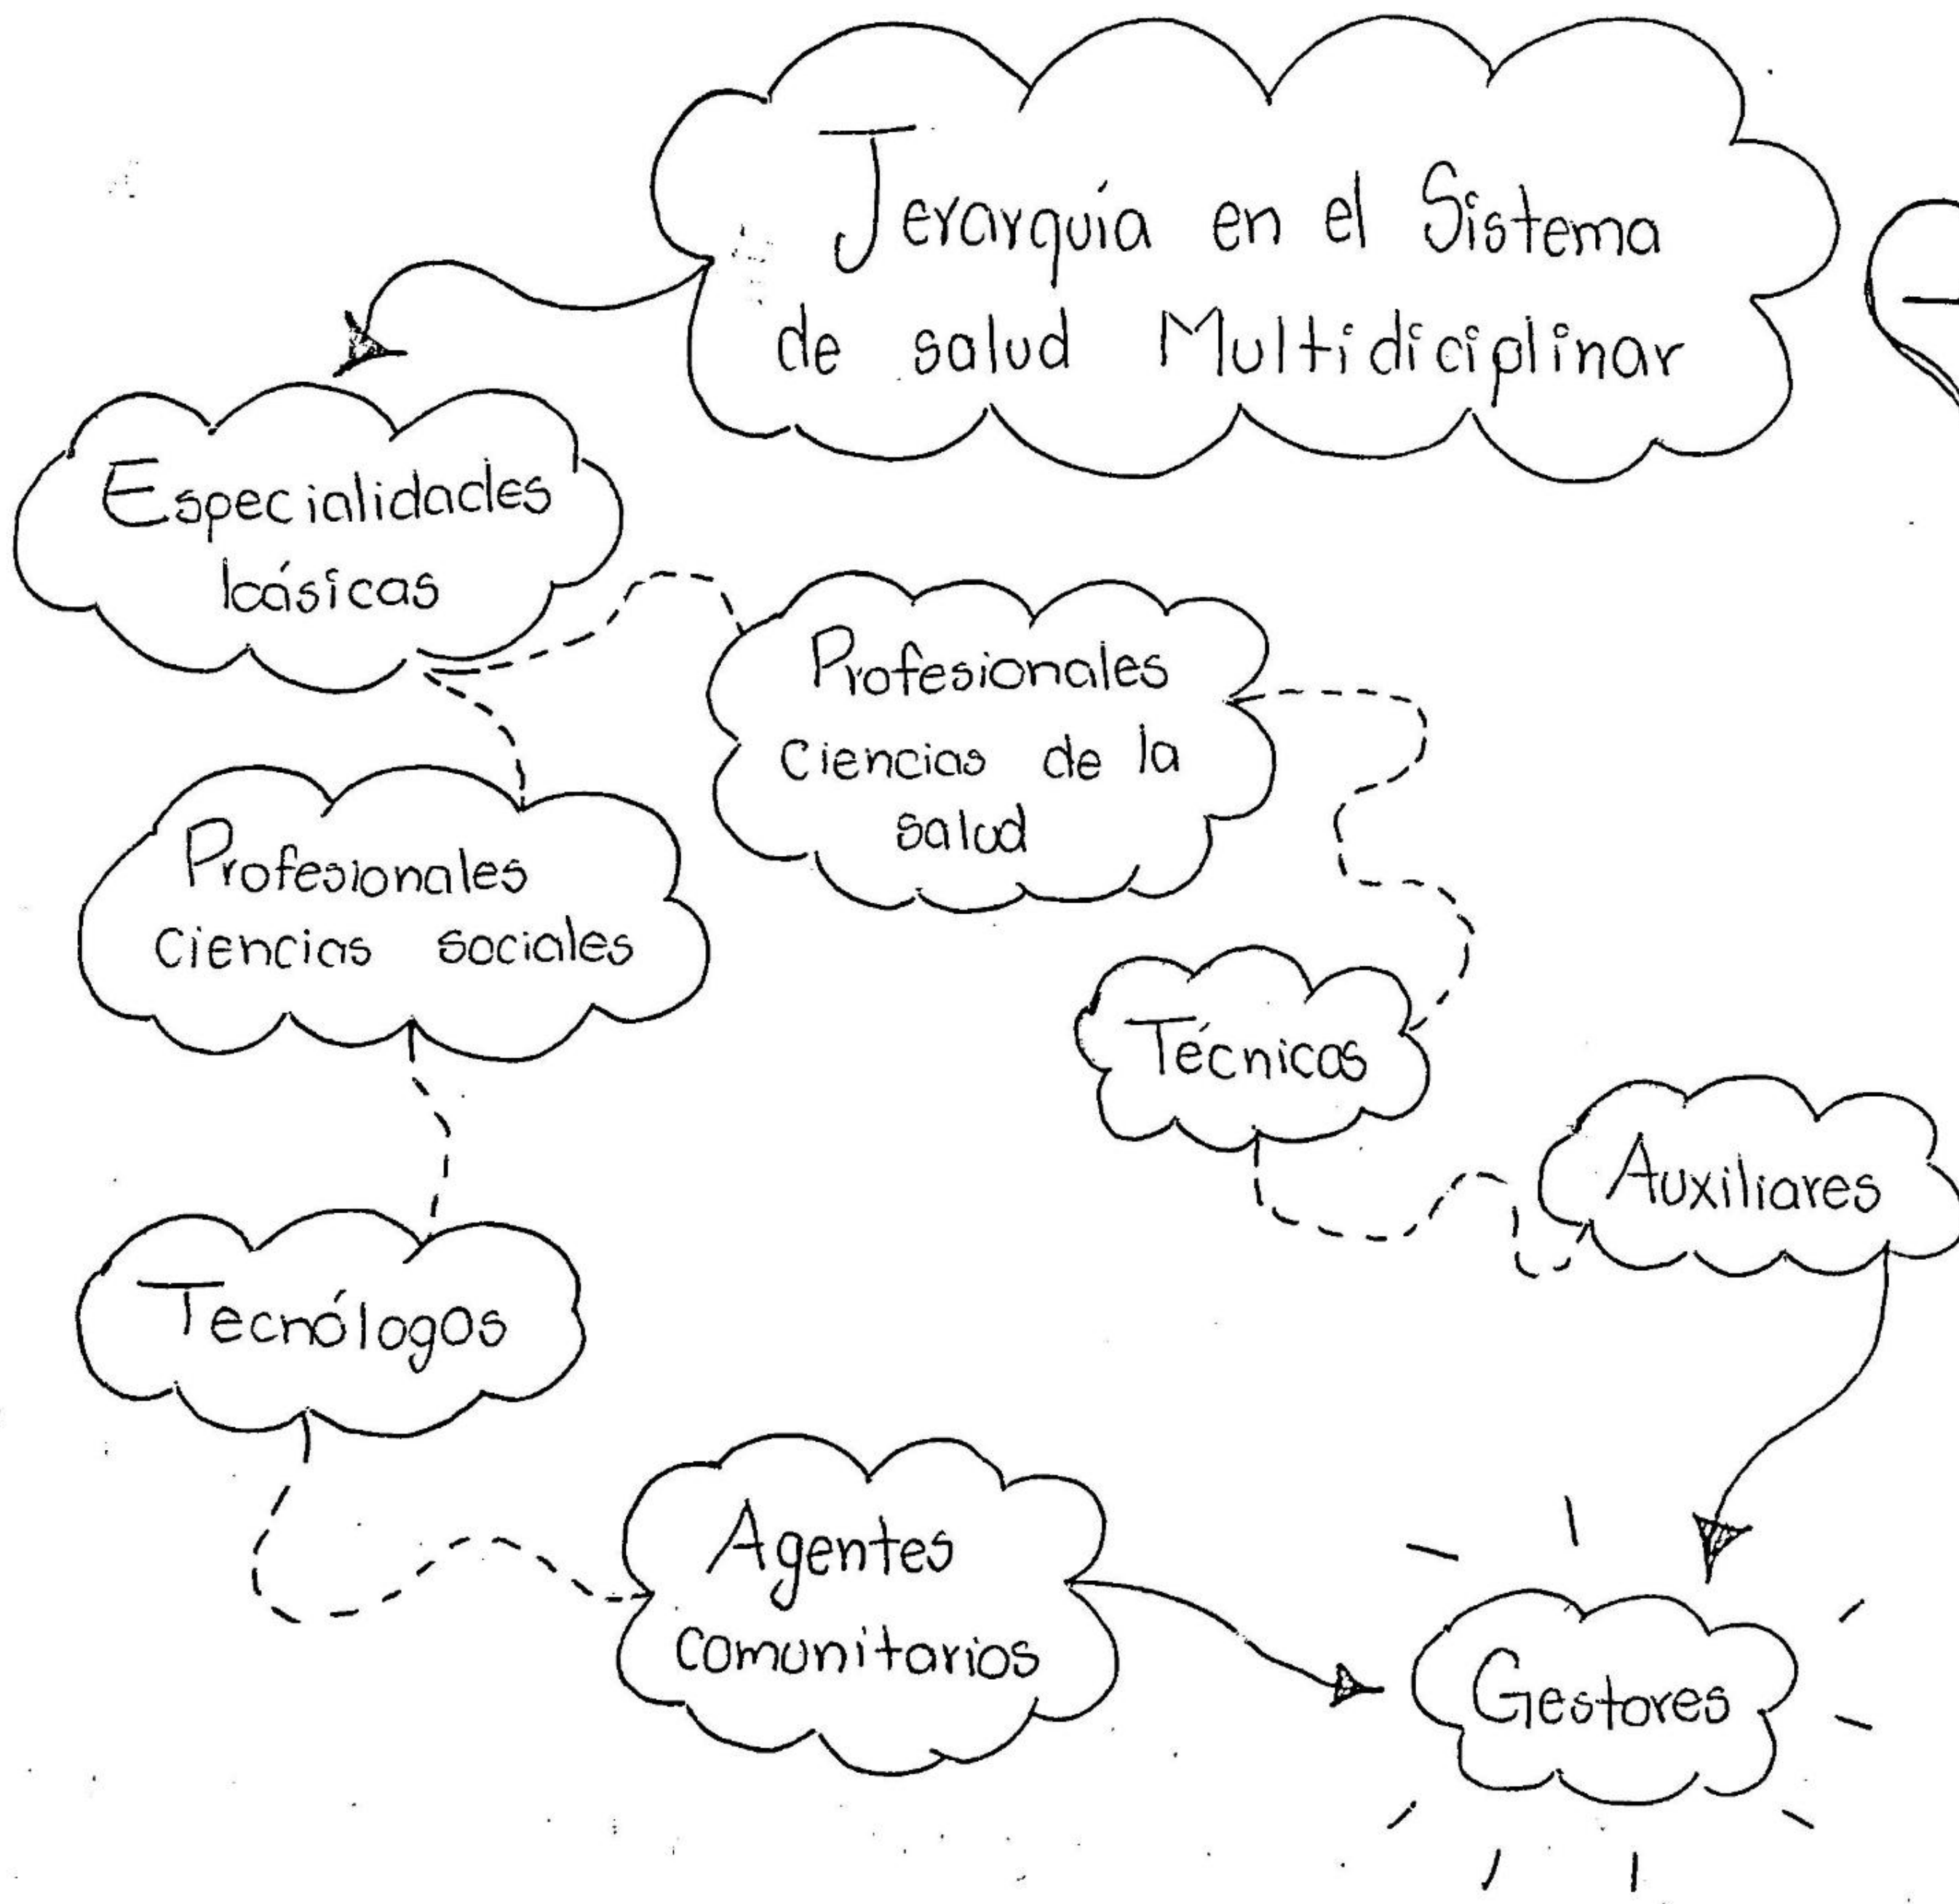 Jerarquía en el Sistema
de salud Multidiciplinar
Especialidades
básicas
Profesionales
ciencias de la
salud
Profesionales
ciencias sociales
Técnicos
Auxiliares
Tecnólogos
Agentes
comunitarios
Gestores